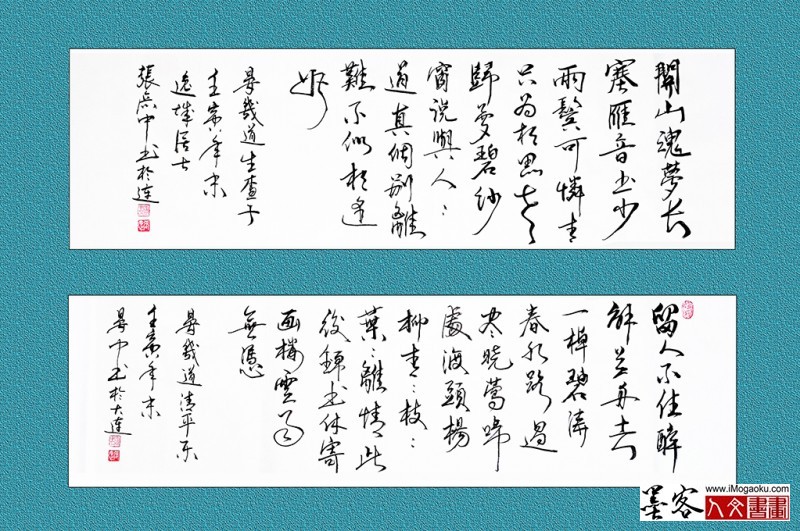 關山魂夢長
塞雁音书少
兩鬢可憐青
只為相思老
歸夢碧紗
窗說與人：
道真個別離
難不似相逢
好
晏幾道生查子
壬寅年末
逸城居士
張晨中书於連
留人不住醉
解蘭舟去
一棹碧濤
春水路過
盡曉鶯啼
處渡頭楊
柳青：枝：
葉：離情此
後錦书休寄
画樓雲雨
無憑
晏幾道清平樂
壬寅年末
晨中书於大連
www.iMogaoku.com
墨客
人文書畫